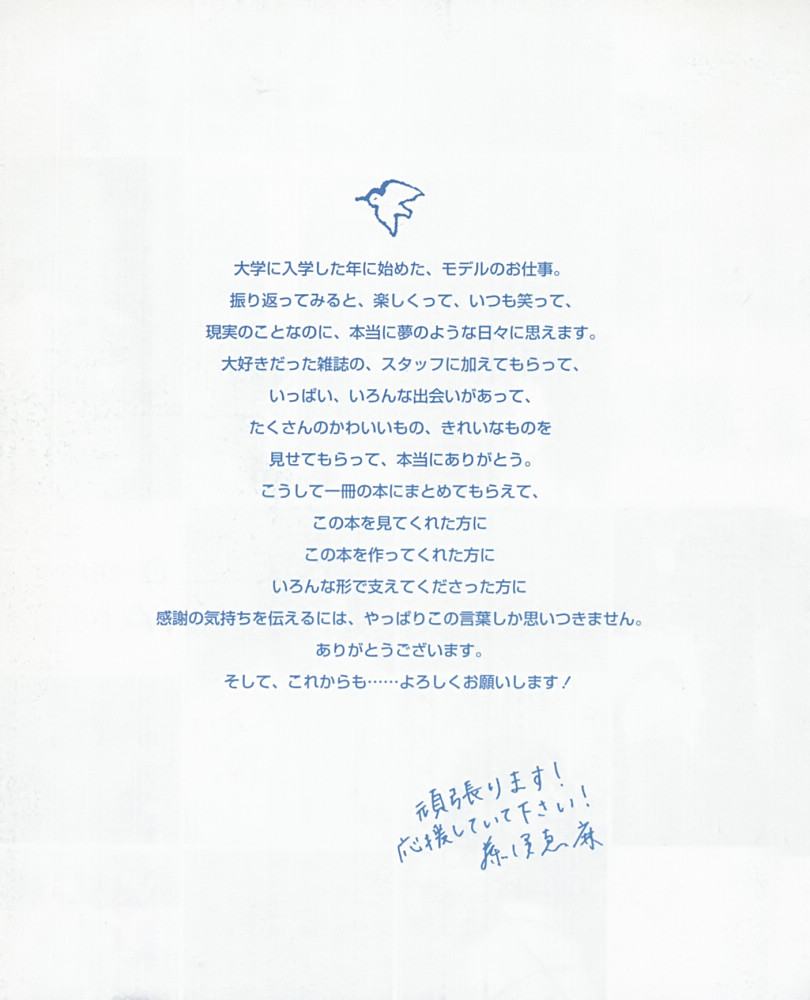 大学に入学した年に始めた、モデルのお仕事。
振り返ってみると、楽しくって、いつも笑って、
現実のことなのに、本当に夢のような日々に思えます。
大好きだった雑誌の、スタッフに加えてもらって、
いっぱい、いろんな出会いがあって、
たくさんのかわいいもの、きれいなものを
見せてもらって、本当にありがとう。
こうして一冊の本にまとめてもらえて、
この本を見てくれた方に
この本を作ってくれた方に
いろんな形で支えてくださった方に
感謝の気持ちを伝えるには、やっぱりこの言葉しか思いつきません。
ありがとうございます。
そして、これからも……よろしくお願いします！
頑張ります！
応援していて下さい！
藤沢恵麻